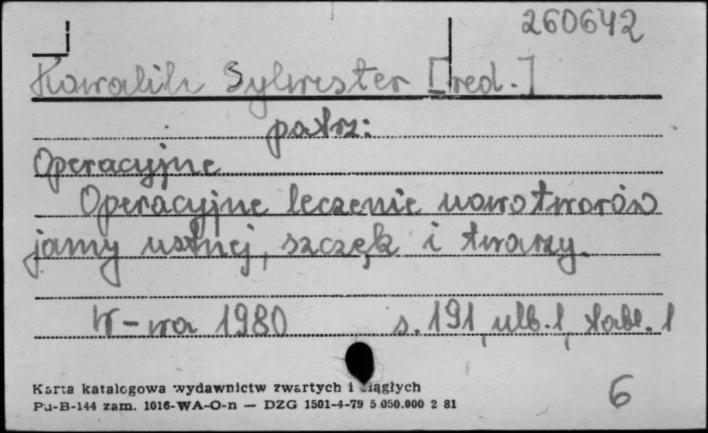 260642
Kowalik Sylwester [red.]
patrz:
Operacyjne
Operacyjne leczenie nowotworów
jamy ustnej, szczęk i twarzy.
W-wa 1980 s. 191, ulb. 1, tabl. 1
Karta katalogowa wydawnictw zwartych i ciągłych
Pu-B-144 zam. 1016-WA-O-n — DZG 1501-4-79 5.050.000 2 81
6